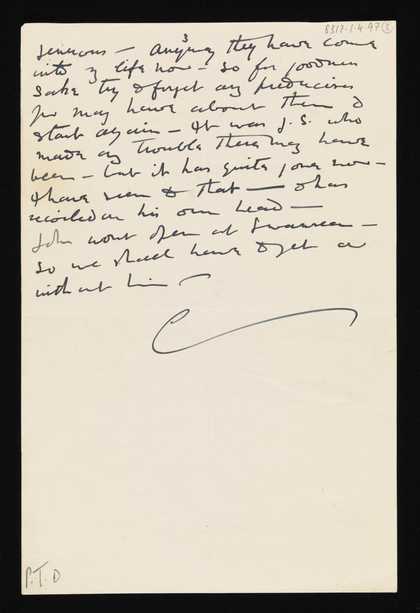 8817.1.4.97 (3)
3
generous — Anyway they have come
into my life now — So for goodness
sake try & forget any prejudices
you may have about them &
start again — It was J. S. who
made any trouble there may have
been — but it has quite gone now —
I have seen to that — & has
recoiled on his own head —
John wont open at Swansea —
So we shall have to get on
without him —
P.T.O